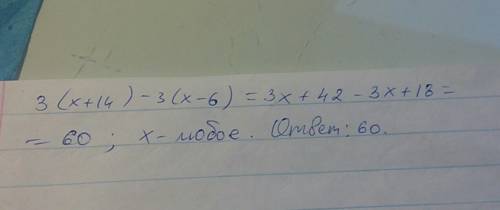 3(x+14)-3(x-6) = 3x+42-3x+18=
= 60 ; x - любое. Ответ: 60.